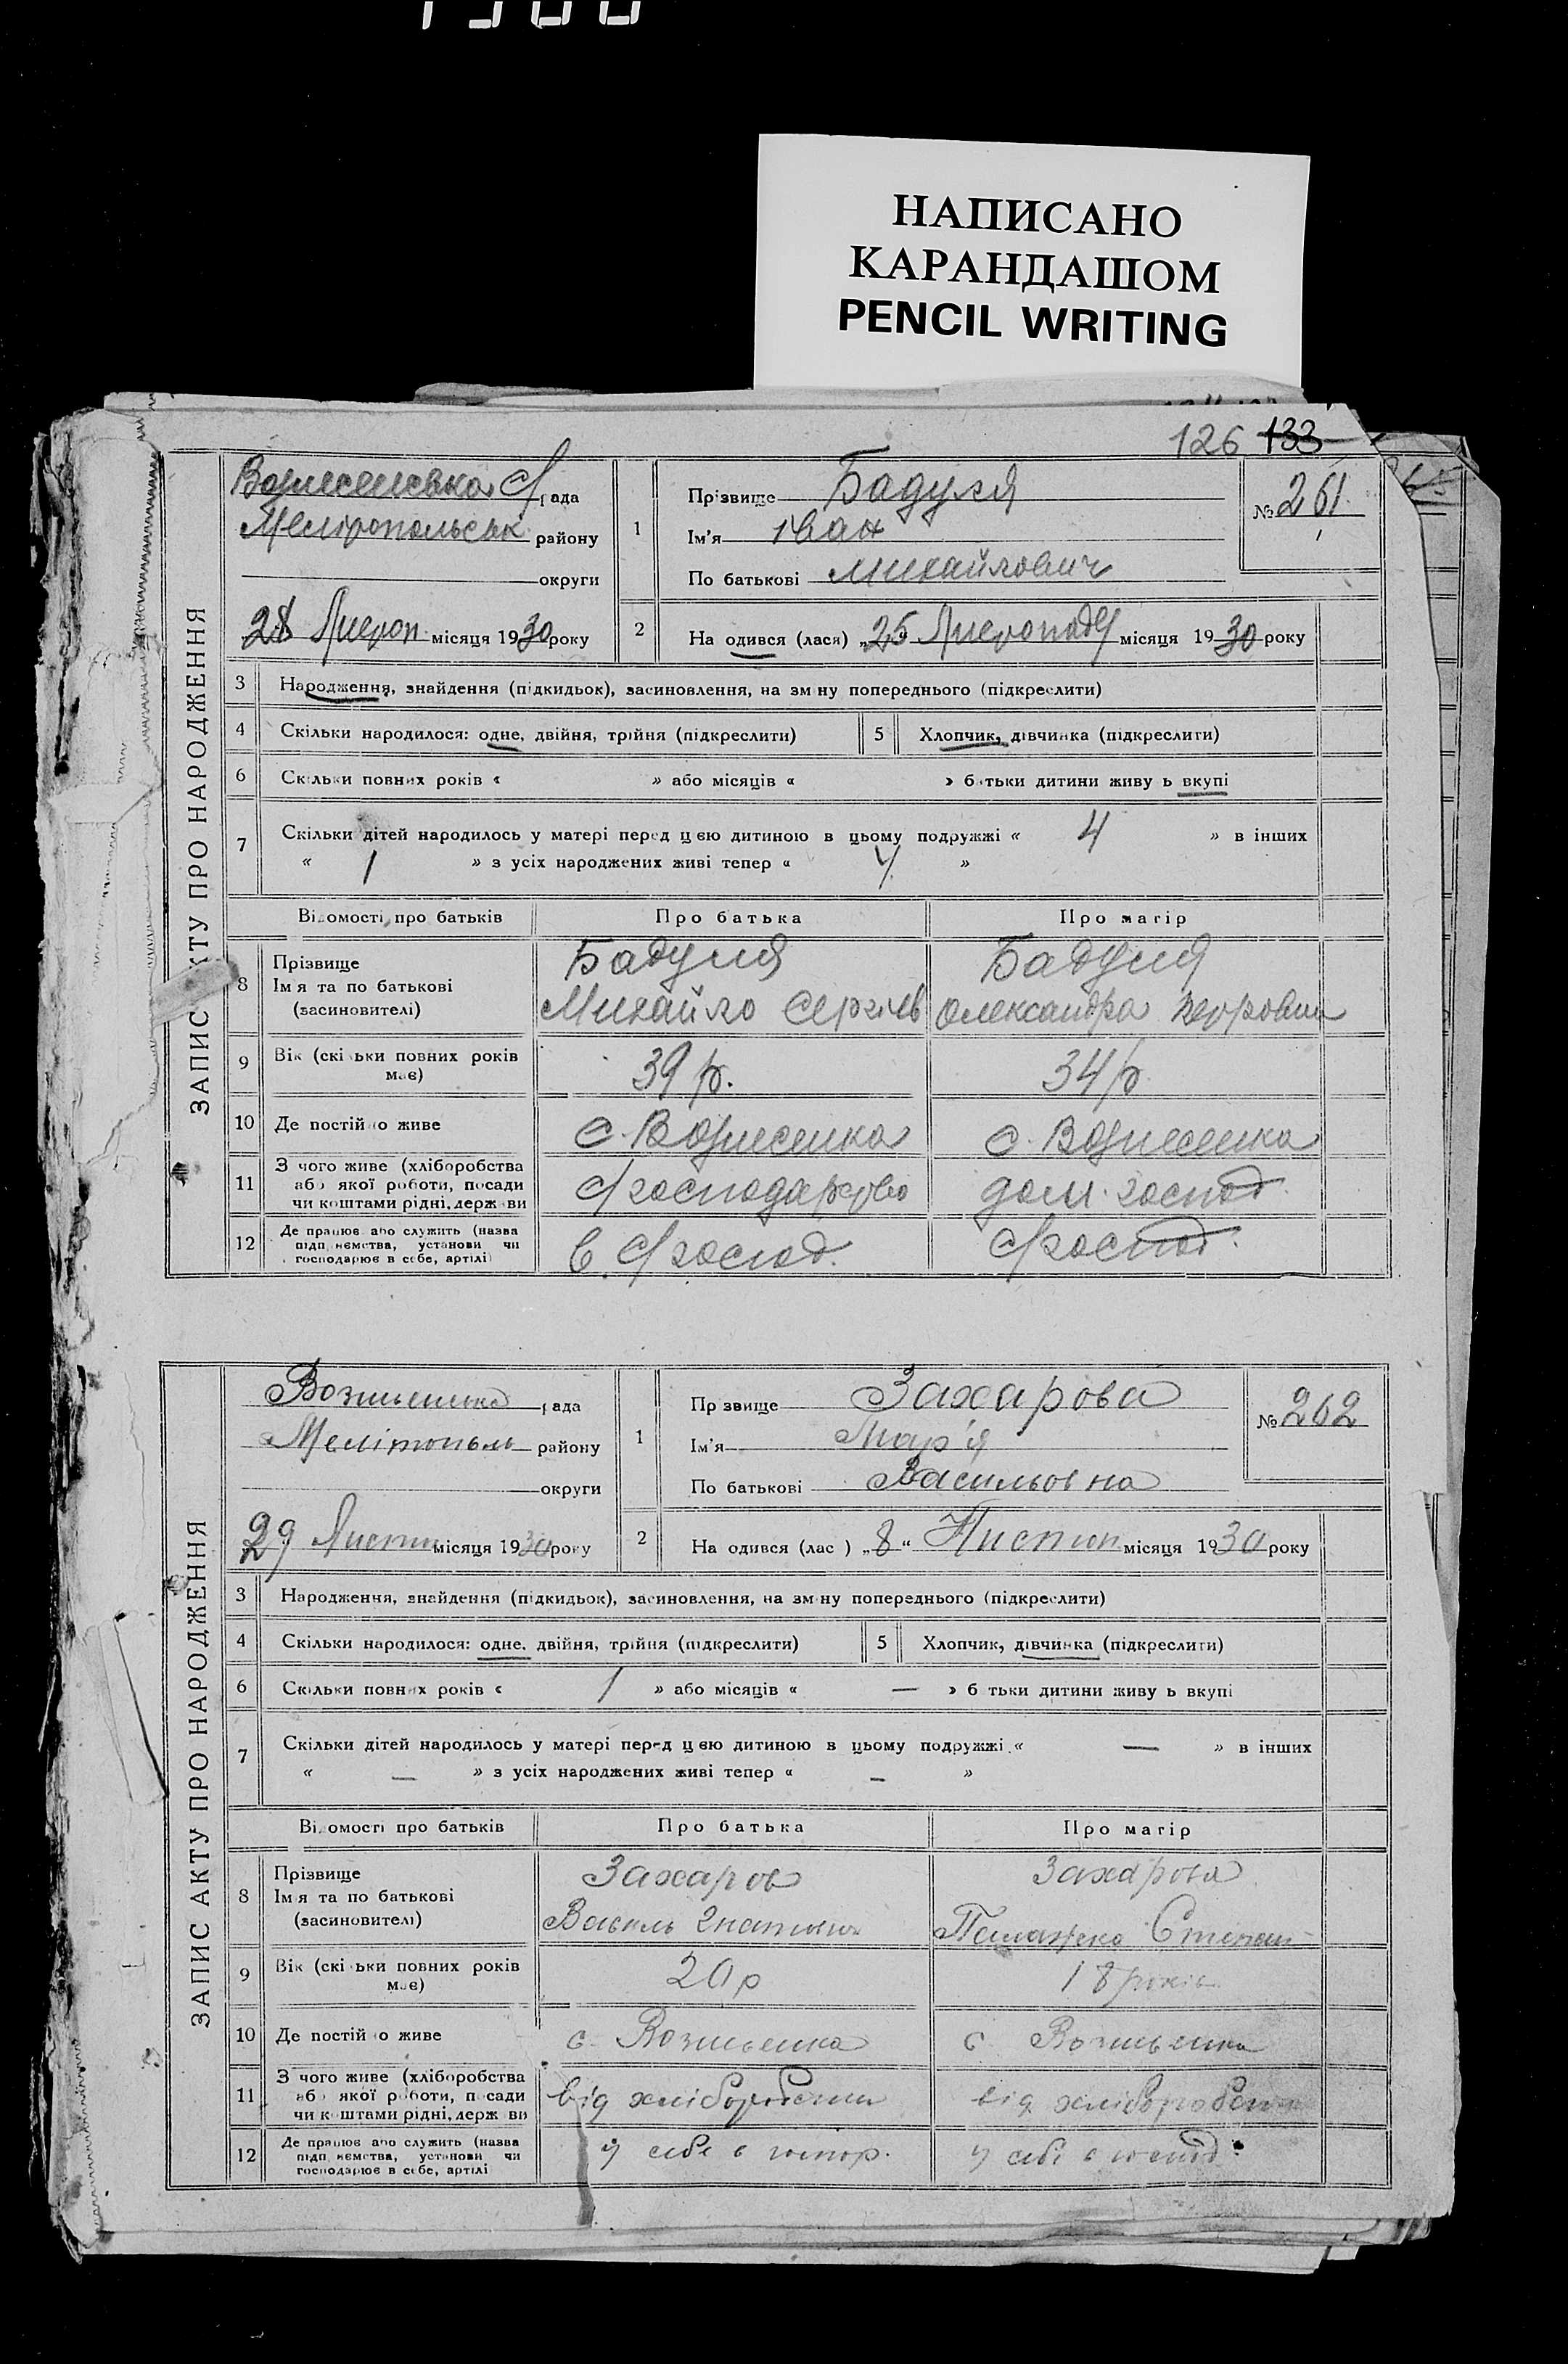 НАПИСАНО
КАРАНДАШОМ
PENCIL WRITING
126 133
ЗАПИС АКТУ ПРО НАРОДЖЕННЯ
Вознесенська С/рада
Мелітопольськ району
округи
28 Листоп місяця 1930 року
1
Прізвище Бадуля
Ім'я Іван
По батькові Михайлович
№ 261
2
На одився (лася) „25" Листопаду місяця 1930 року
3 Народження, знайдення (підкидьок), засиновлення, на зм ну попереднього (підкреслити)
4 Скільки народилося: одне, двійня, трійня (підкреслити) 5 Хлопчик, дівчинка (підкреслити)
6 Скільки повних років « » або місяців « » батьки дитини живу ь вкупі
7 Скільки дітей народилось у матері перед цею дитиною в цьому подружжі « 4 » в інших
« 1 » з усіх народжених живі тепер « 4 »
Відомості про батьків Про батька Про матір
8 Прізвище
Імя та по батькові
(засиновителі)
Бадуля
Михайло Сергієв
Бадуля
Олександра Петровна
9 Вік (скільки повних років має) 39 р. 34 р
10 Де постійно живе с. Вознесенка с. Вознесенка
11 З чого живе (хліборобства
або якої роботи, посади
чи коштами рідні, держ ви
с/господарство дом. господ.
12 Де працює або служить (назва
підп ємства, установи чи
господарює в себе, артілі)
в с/господ. с/господ.
ЗАПИС АКТУ ПРО НАРОДЖЕННЯ
рада
Мелітополь району
округи
29 Листоп місяця 1930 року
1
Пр звище Захарова
Ім'я Мар'я
По батькові Васильовна
№ 262
2
На одився (лас ) „8" Листоп місяця 1930 року
3 Народження, знайдення (підкидьок), засиновлення, на зм ну попереднього (підкреслити)
4 Скільки народилося: одне, двійня, трійня (підкреслити) 5 Хлопчик, дівчинка (підкреслити)
6 Скільки повних років « 1 » або місяців « — » б тьки дитини живу ь вкупі
7 Скільки дітей народилось у матері перед цею дитиною в цьому подружжі « — » в інших
« — » з усіх народжених живі тепер « — »
Відомості про батьків Про батька Про матір
8 Прізвище
Імя та по батькові
(засиновителі)
Захаров
Василь
Захарова
Степан
9 Вік (скільки повних років має) 20 р 18 років
10 Де постійно живе с. с.
11 З чого живе (хліборобства
або якої роботи, посади
чи коштами рідні, держ ви
від хліборобства від хліборобства
12 Де працює або служить (назва
підп ємства, установи чи
господарює в себе, артілі
у себе в у себе в господ.